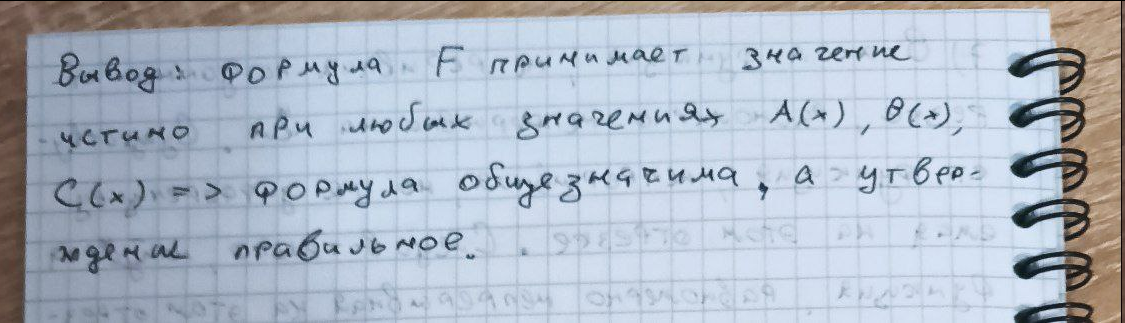 Вывод: формула F принимает значение
истино при любых значениях A(x), B(x),
C(x) => формула общезначима, а утвер-
ждение правильное.